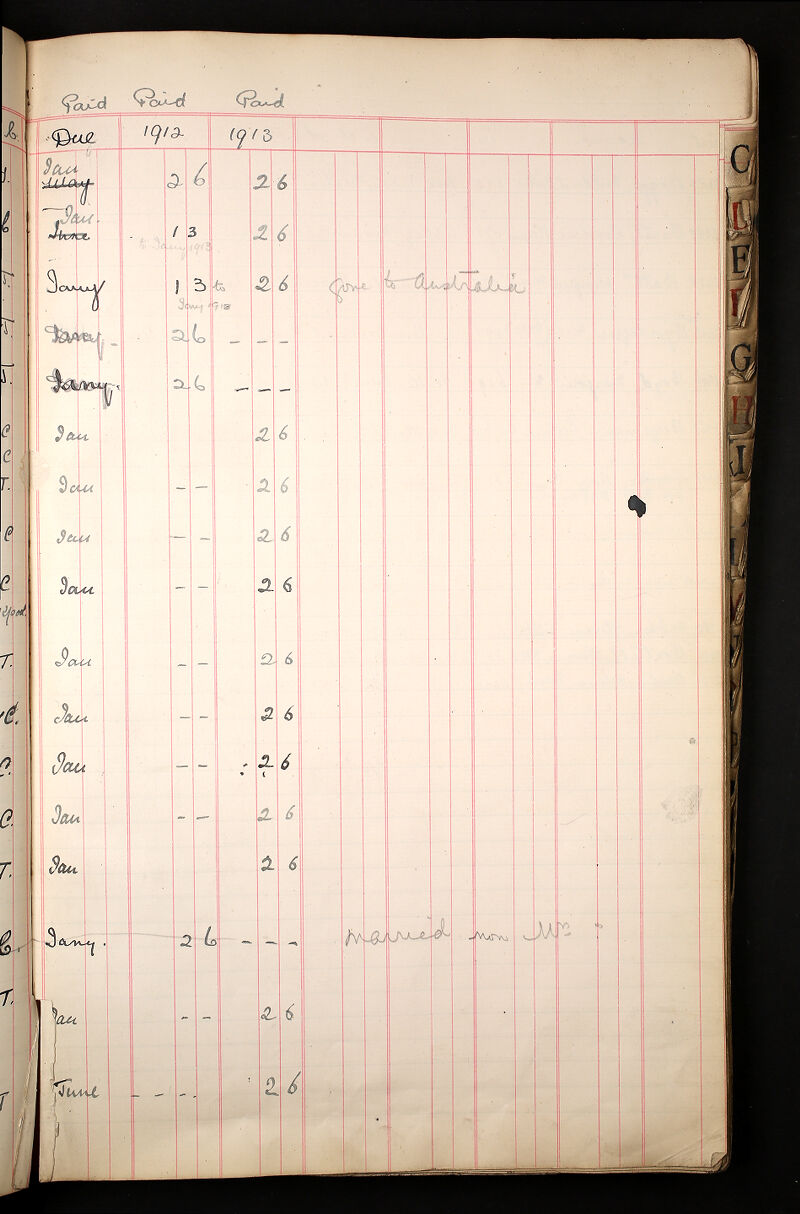 Paid Paid Paid
Due 1912 1913
Jan
May 2 6 2 6
Jan.
June 1 3 2 6
to Jany 1913.
Jany 1 3 to 2 6 gone to Australia
Jany 1913
Jany - 2 6 - - -
Jany. 2 6 - - -
Jan 2 6
Jan - - 2 6
Jan - - 2 6
Jan - - 2 6
Jan - - 2 6
Jan - - 2 6
Jan - - : 2 6
Jan - - 2 6
Jan 2 6
Jany. 2 6 - - - Married now Mrs
Jan - - 2 6
June - - - - 2 6
C
E
F
G
H
I